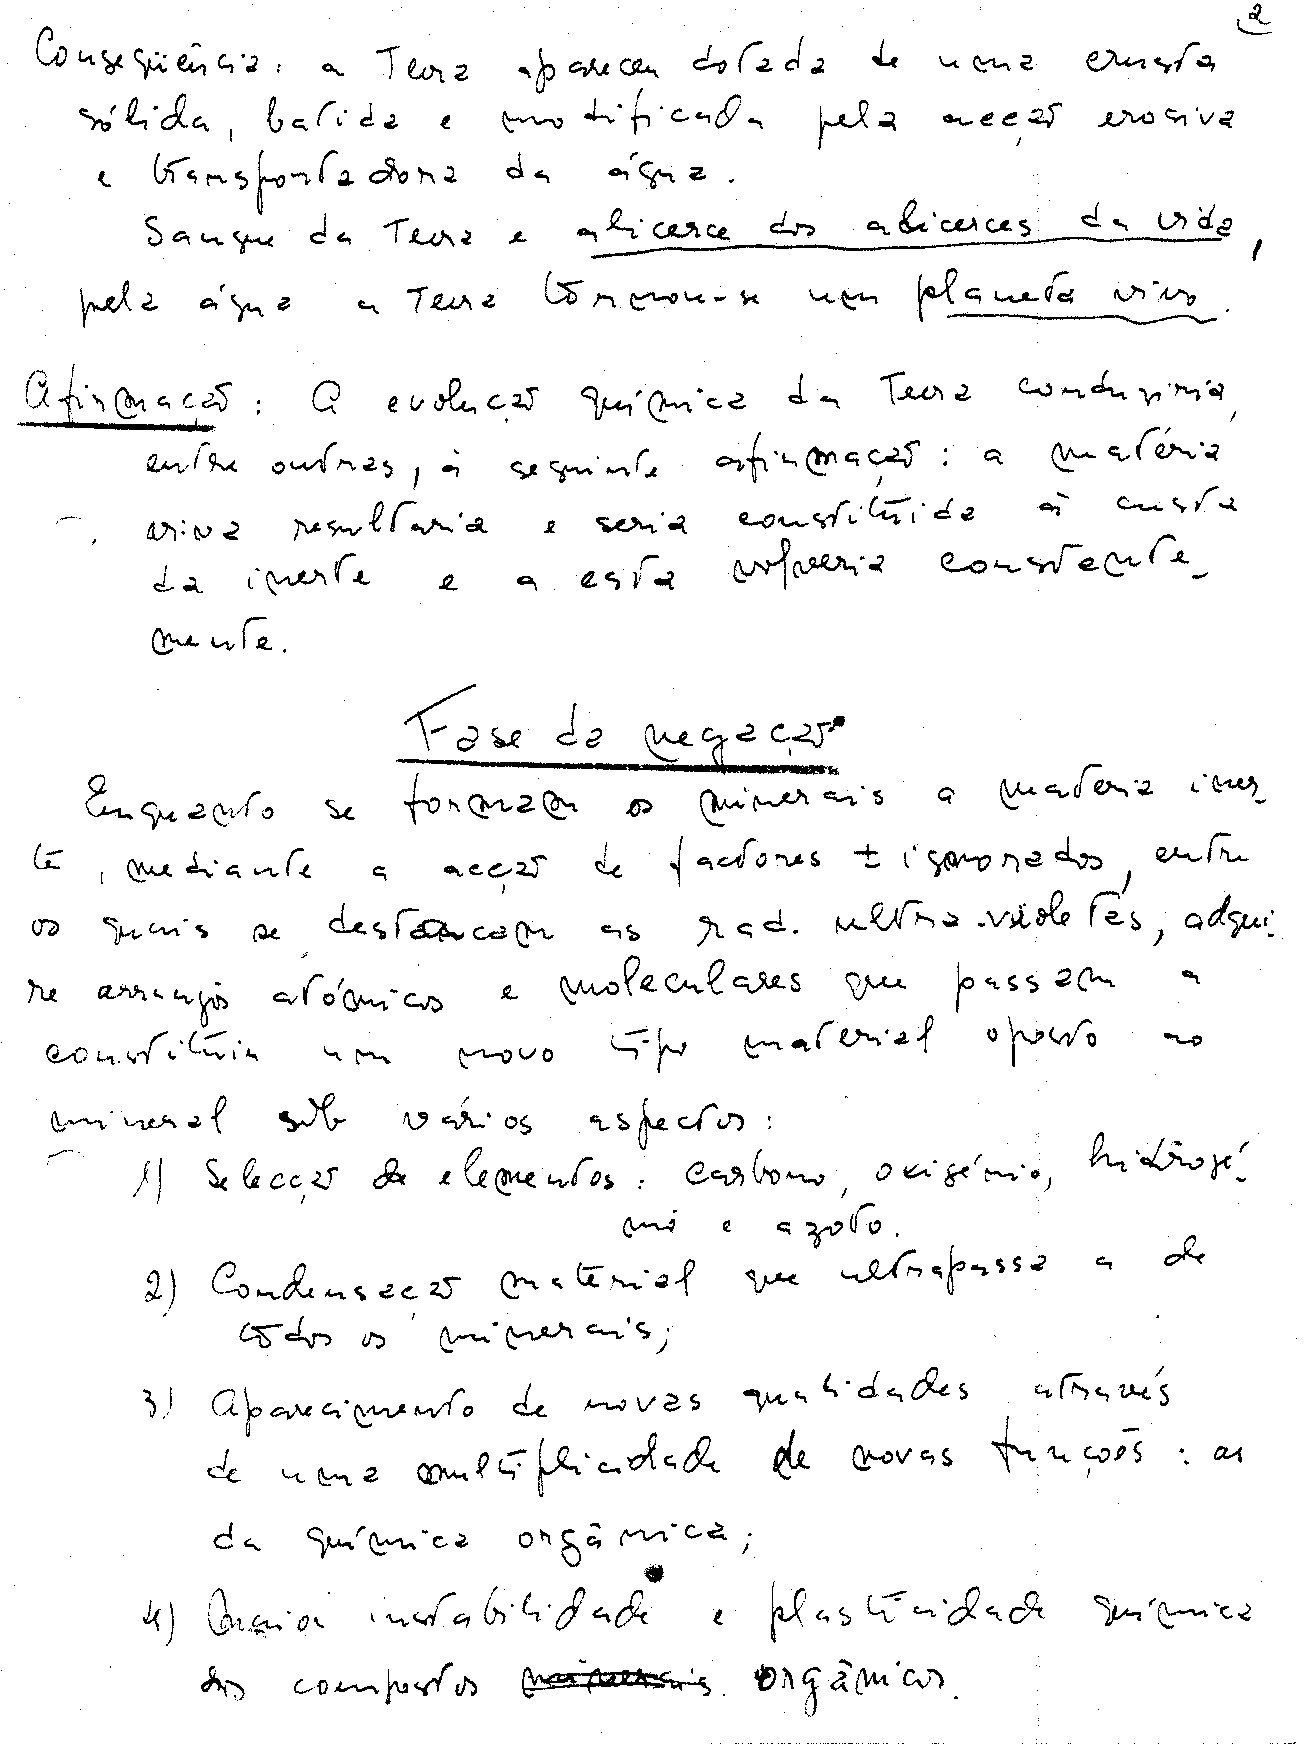 2
Conseqüência: a Terra apareceu dotada de uma crusta
sólida, batida e modificada pela acção erosiva
e transportadora da água.
Sangue da Terra e alicerce dos alicerces da vida,
pela água a Terra tornou-se um planeta vivo.
Afirmação: A evolução química da Terra conduziria,
entre outras, à seguinte afirmação: a matéria
viva resultaria e seria constituida à custa
da inerte e a esta volveria constante-
mente.
Fase da negação
Enquanto se formam os minerais a materia iner-
te, mediante a acção de factores ± ignorados, entre
os quais se destacam as rad. ultra-violetas, adqui-
re arranjos atómicos e moleculares que passam a
constituir um novo tipo material oposto ao
mineral sob vários aspectos:
1) Selecção de elementos: carbono, oxigénio, hidrogé-
nio e azoto.
2) Condensação material que ultrapassa a de
todos os minerais;
3) Aparecimento de novas qualidades através
de uma multiplicidade de novas funções: as
da química orgânica;
4) Maior instabilidade e plasticidade química
dos compostos minerais orgânicos.